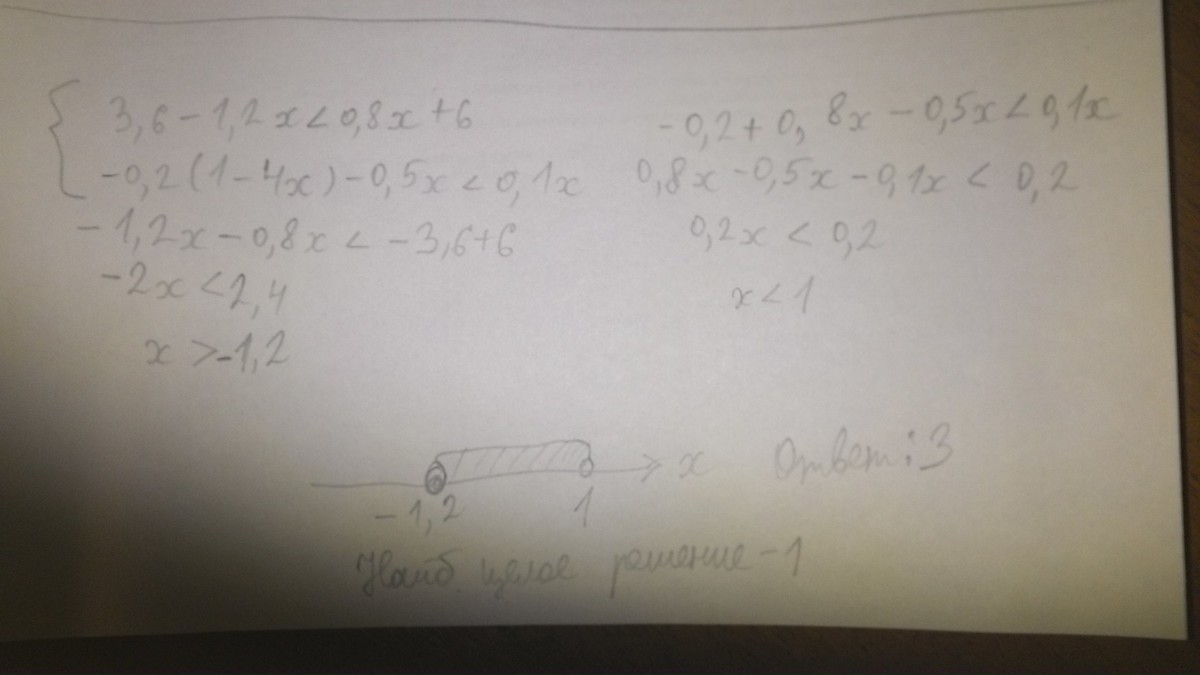 3,6 - 1,2x < 0,8x + 6
-0,2(1 - 4x) - 0,5x < 0,1x
-1,2x - 0,8x < -3,6 + 6
-2x < 2,4
x > -1,2
-0,2 + 0,8x - 0,5x < 0,1x
0,8x - 0,5x - 0,1x < 0,2
0,2x < 0,2
x < 1
x
-1,2 1
Ответ: 3
Наиб. целое решение - 1